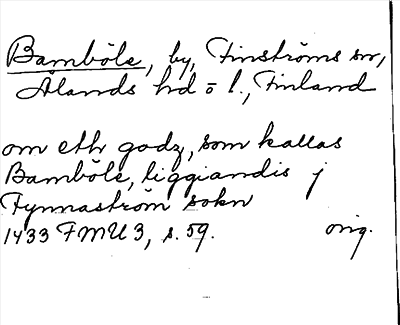 Bamböle, by, Finströms sn,
Ålands hd o l., Finland
om eth godz, som kallas
Bamböle, liggiandis j
Fynnaström sokn
1433 FMU 3, s. 59. orig.